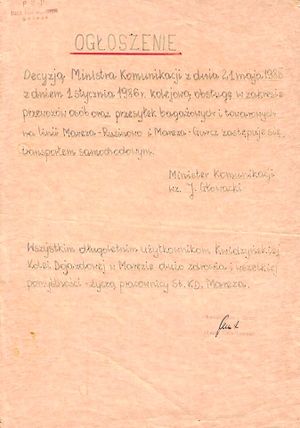 P K P
OGŁOSZENIE
Decyzją Ministra Komunikacji z dnia 21 maja 1985
z dniem 1 stycznia 1986r. kolejową obsługę w zakresie
przewozów osób oraz przesyłek bagażowych i towarowych
na linii Mareza - Rusinowo i Mareza - Gurcz zastępuje się
transportem samochodowym.
Minister Komunikacji
wz. J. Głowacki
Wszystkim długoletnim użytkownikom Kwidzyńskiej
Kolei Dojazdowej w Marezie dużo zdrowia i wszelkiej
pomyślności - życzą pracownicy St. KD. Mareza.